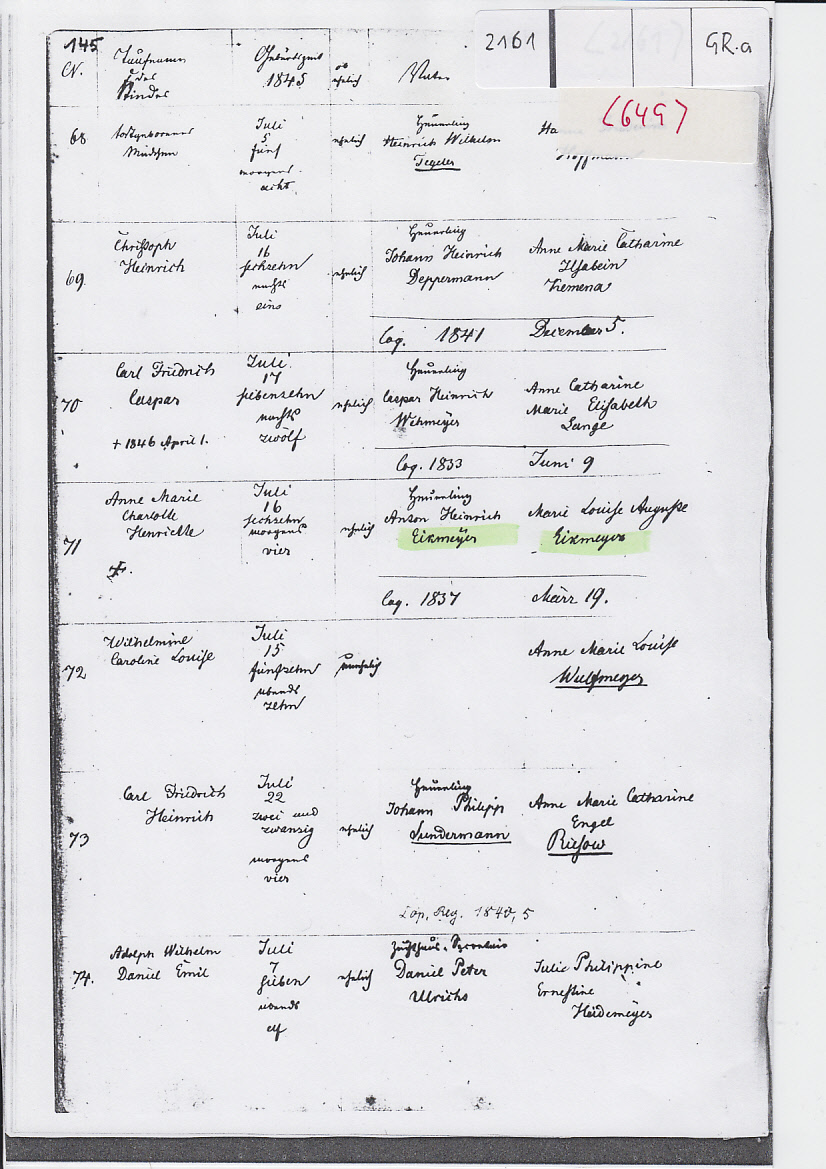 2161
(2161)
GR.a
(649)
145
N.
Taufnamen
des
Kindes
Geburtszeit
1845
ob
ehelich
Vater
68
todtgeborenes
Mädchen
Juli
5
fünf
morgens
acht
ehelich
Heuerling
Heinrich Wilhelm
Tegeler
Ha
Hoffmann
69.
Christoph
Heinrich
Juli
16
sechzehn
nachts
eins
ehelich
Heuerling
Johann Heinrich
Deppermann
Anne Marie Catharine
Ilsabein
Ziemena
Cop. 1841 December 5.
70
Carl Friedrich
Caspar
+ 1846 April 1.
Juli
17
siebenzehn
nachts
zwölf
ehelich
Heuerling
Caspar Heinrich
Wehmeyer
Anne Catharine
Marie Elisabeth
Lange
Cop. 1833 Juni 9
71
Anne Marie
Charlotte
Henriette
+.
Juli
16
sechzehn
morgens
vier
ehelich
Heuerling
Anton Heinrich
Eikmeÿer
Marie Louise Auguste
Eikmeyer
Cop. 1837 März 19.
72
Wilhelmine
Caroline Louise
Juli
15
fünfzehn
abends
zehn
unehelich
Anne Marie Louise
Wulfmeyer
73
Carl Friedrich
Heinrich
Juli
22
zwei und
zwanzig
morgens
vier
ehelich
Heuerling
Johann Philipp
Sundermann
Anne Marie Catharine
Engel
Riesow
Cop. Reg. 1840, 5
74.
Adolph Wilhelm
Daniel Emil
Juli
7
sieben
abends
elf
ehelich
Daniel Peter
Ulrichs
Julie Philippine
Ernestine
Heidemeÿer